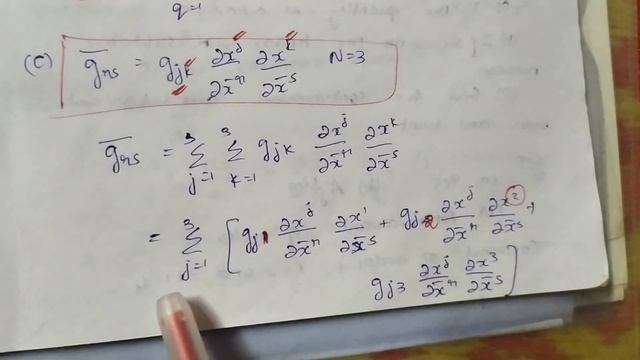 q=1
(c) \overline{g}_{rs} = g_{jk} \frac{∂x^j}{∂\overline{x}^r} \frac{∂x^k}{∂\overline{x}^s} N=3
\overline{g}_{rs} = \sum_{j=1}^{3} \sum_{k=1}^{3} g_{jk} \frac{∂x^j}{∂\overline{x}^r} \frac{∂x^k}{∂\overline{x}^s}
= \sum_{j=1}^{3} [ g_{j1} \frac{∂x^j}{∂\overline{x}^r} \frac{∂x^1}{∂\overline{x}^s} + g_{j2} \frac{∂x^j}{∂\overline{x}^r} \frac{∂x^2}{∂\overline{x}^s} +
g_{j3} \frac{∂x^j}{∂\overline{x}^r} \frac{∂x^3}{∂\overline{x}^s} ]